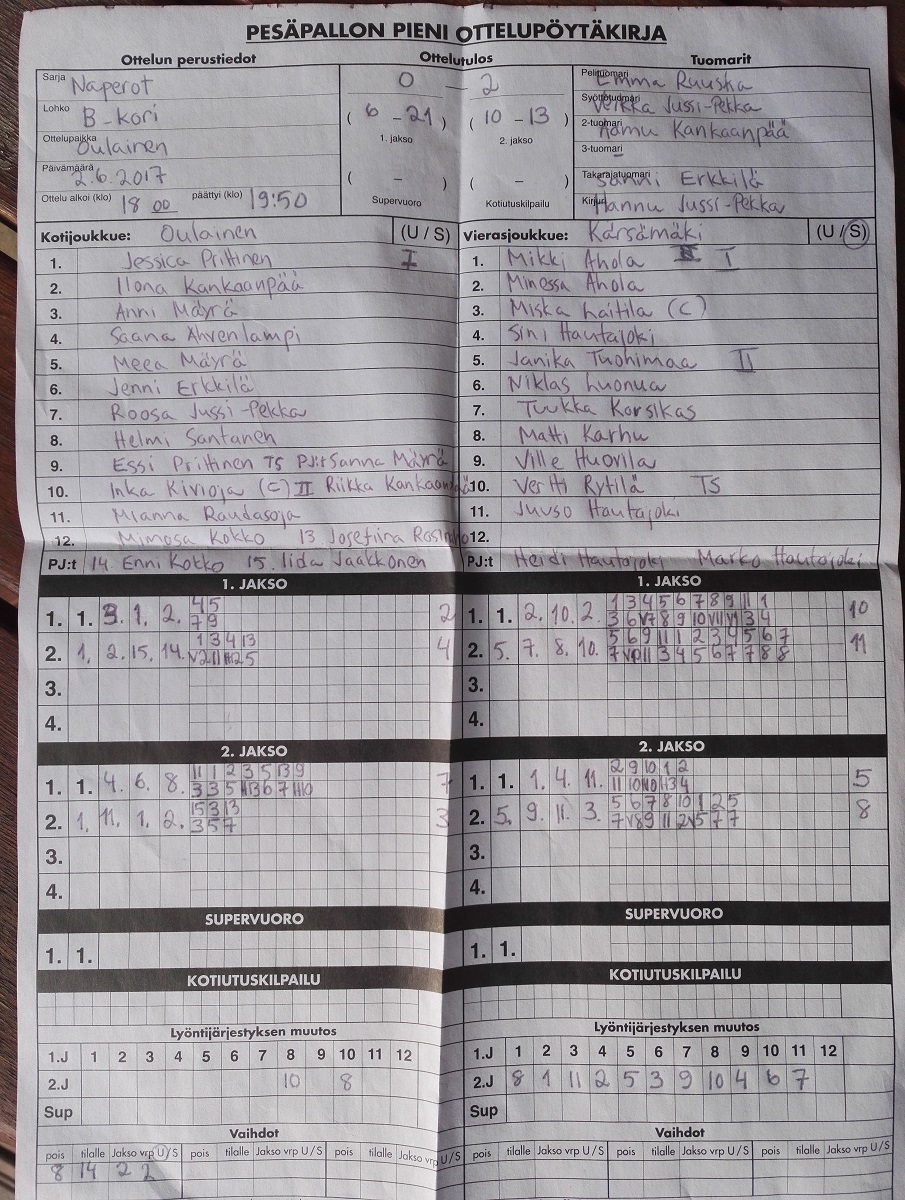 PESÄPALLON PIENI OTTELUPÖYTÄKIRJA
Ottelun perustiedot Ottelutulos Tuomarit
Sarja Naperot 0 – 2 Pelituomari Emma Ruuska
Lohko B-kori ( 6 – 21 ) ( 10 – 13 ) Syöttötuomari Veikka Jussi-Pekka
1. jakso 2. jakso 2-tuomari Aamu Kankaanpää
Ottelupaikka Oulainen 3-tuomari –
Päivämäärä 2.6.2017 ( – ) ( – ) Takarajatuomari Sanni Erkkilä
Ottelu alkoi (klo) 18 00 päättyi (klo) 19:50 Supervuoro Kotiutuskilpailu Kirjuri Hannu Jussi-Pekka
Kotijoukkue: Oulainen (U / S) Vierasjoukkue: Kärsämäki (U / S)
1. Jessica Prittinen I 1. Mikki Ahola I
2. Ilona Kankaanpää 2. Minessa Ahola
3. Anni Mäyrä 3. Miska Laitila (C)
4. Saana Ahvenlampi 4. Sini Hautajoki
5. Meea Mäyrä 5. Janika Tuohimaa II
6. Jenni Erkkilä 6. Niklas Luonua
7. Roosa Jussi-Pekka 7. Tuukka Korsikas
8. Helmi Santanen 8. Matti Karhu
9. Essi Prittinen TS PJ:t Sanna Mäyrä 9. Ville Huovila
10. Inka Kivioja (C) II Riikka Kankaanpää 10. Vertti Rytilä TS
11. Mianna Raudasoja 11. Juuso Hautajoki
12. Mimosa Kokko 13. Josefiina 12.
PJ:t 14. Enni Kokko 15. Iida Jaakkonen PJ:t Heidi Hautajoki Marko Hautajoki
1. JAKSO 1. JAKSO
1. 1. 9. 1. 2. 4 5 2 1. 1. 2. 10. 2. 1 3 4 5 6 7 8 9 11 1 10
7 9
2. 1. 2. 15. 14. 1 3 4 13 4 2. 5. 7. 8. 10. 5 6 9 11 1 2 3 4 5 6 7 11
3. 3.
4. 4.
2. JAKSO 2. JAKSO
1. 1. 4. 6. 8. 11 1 2 3 5 13 9 7 1. 1. 1. 4. 11. 2 9 10 1 2 5
2. 1. 11. 1. 2. 15 3 13 3 2. 5. 9. 11. 3. 5 6 7 8 10 1 2 5 8
3 5 7
3. 3.
4. 4.
SUPERVUORO SUPERVUORO
1. 1. 1. 1.
KOTIUTUSKILPAILU KOTIUTUSKILPAILU
Lyöntijärjestyksen muutos Lyöntijärjestyksen muutos
1.J 1 2 3 4 5 6 7 8 9 10 11 12 1.J 1 2 3 4 5 6 7 8 9 10 11 12
2.J 10 8 2.J 8 1 11 2 5 3 9 10 4 6 7
Sup Sup
Vaihdot Vaihdot
pois tilalle Jakso vrp U/S pois tilalle Jakso vrp U/S pois tilalle Jakso vrp U/S pois tilalle Jakso vrp U/S pois tilalle Jakso vrp U/S pois tilalle Jakso vrp U/S
8 14 2 2